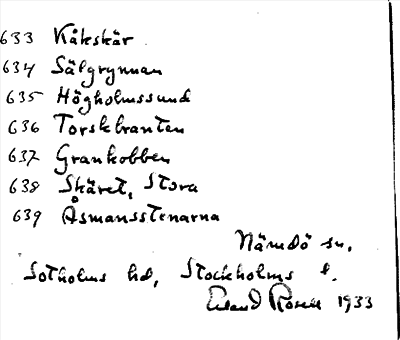 633 Kåkskär
634 Sälgrynnan
635 Högholmssund
636 Torskbranten
637 Grankobben
638 Skäret, Stora
639 Åsmansstenarna
Nämdö sn,
Sotholms hd, Stockholms l.
Erland Rosell 1933